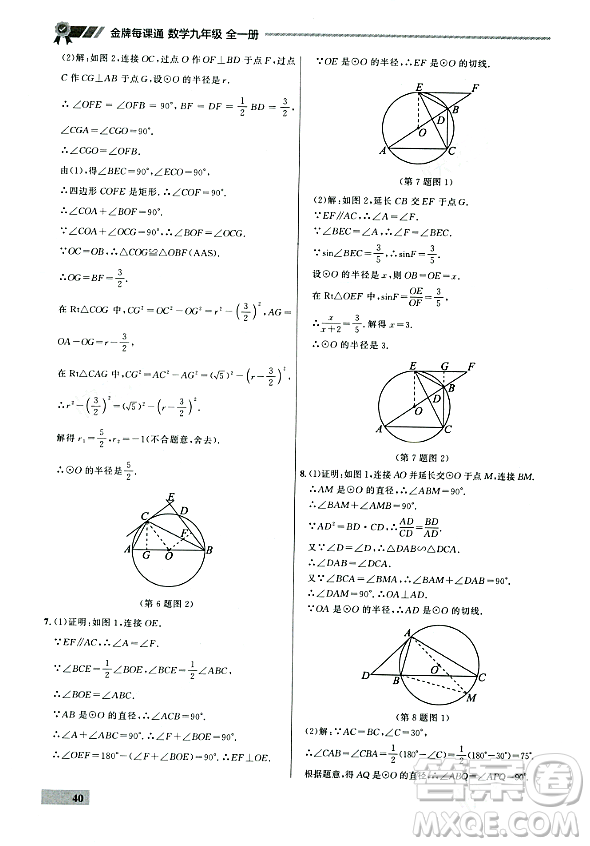 金牌每课通 数学九年级 全一册
(2)解:如图2,连接OC,过点O作OF⊥BD于点F,过点
C作CG⊥AB于点G,设⊙O的半径是r.
∴∠OFE=∠OFB=90°,BF=DF=1/2 BD=3/2,
∠CGA=∠CGO=90°.
∴∠CGO=∠OFB.
由(1),得∠BEC=90°,∠ECO=90°.
∴四边形COFE是矩形.∴∠COF=90°.
∴∠COA+∠BOF=90°.
∵∠COA+∠OCG=90°,∴∠OCG=∠BOF.
∵OC=OB,∴△COG≌△OBF(AAS).
∴OG=BF=3/2.
在Rt△COG中,CG²=OC²-OG²=r²-(3/2)²,AG=
OA-OG=r-3/2.
在Rt△CAG中,CG²=AC²-AG²=(√5)²-(r-3/2)²,
∴r²-(3/2)²=(√5)²-(r-3/2)².
解得r₁=5/2,r₂=-1(不合题意,舍去).
∴⊙O的半径是5/2.
E
C
D
F
A
G
O
B
(第6题图2)
7.(1)证明:如图1,连接OE.
∵EF∥AC,∴∠A=∠F.
∵∠BCE=1/2∠BOE,∠BCE=1/2∠ABC,
∴∠BOE=∠ABC.
∵AB是⊙O的直径,∴∠ACB=90°.
∴∠A+∠ABC=90°.∴∠F+∠BOE=90°.
∴∠OEF=180°-(∠F+∠BOE)=90°.∴EF⊥OE.
∵OE是⊙O的半径,∴EF是⊙O的切线.
E
F
B
D
O
A
C
(第7题图1)
(2)解:如图2,延长CB交EF于点G.
∵EF∥AC,∴∠A=∠F.
∵∠BEC=∠A,∴∠BEC=∠F.
∵sin∠BEC=3/5,∴sinF=3/5.
设⊙O的半径是x,则OB=OE=x.
在Rt△OEF中,sinF=OE/OF=3/5,
∴x/(x+2)=3/5.解得x=3.
∴⊙O的半径是3.
E
G
F
B
D
O
A
C
(第7题图2)
8.(1)证明:如图1,连接AO并延长交⊙O于点M,连接BM.
∴AM是⊙O的直径,∴∠ABM=90°.
∴∠BAM+∠M=90°.
∵AD²=BD·CD,∴AD/CD=BD/AD.
又∵∠D=∠D,∴△DAB∽△DCA.
∴∠DAB=∠DCA.
又∵∠BCA=∠M,∴∠DAB=∠M.
∴∠DAM=∠BAM+∠DAB=90°.
∵OA是⊙O的半径,∴AD是⊙O的切线.
A
O
D
B
C
M
(第8题图1)
(2)解:∵AC=BC,∠C=30°,
∴∠CAB=∠CBA=1/2(180°-∠C)=1/2(180°-30°)=75°.
根据题意,得AQ是⊙O的直径,∴∠ABQ=∠APQ=90°.
40